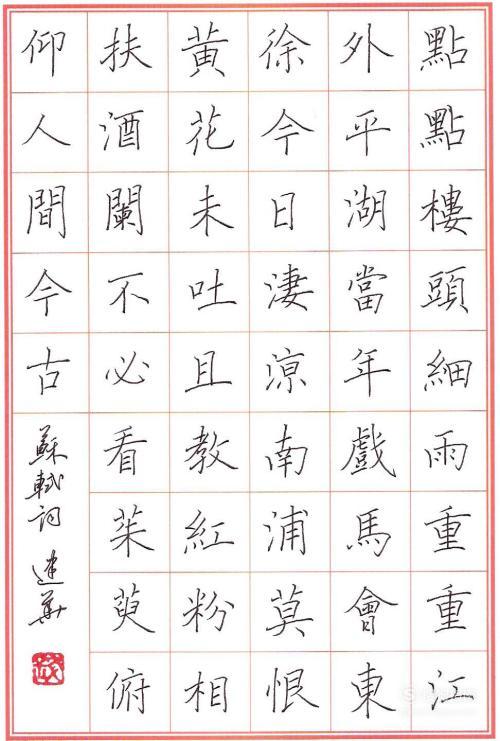 點點樓頭細雨重重江
外平湖當年戲馬會東
徐今日淒涼南浦莫恨
黃花未吐且教紅粉相
扶酒闌不必看茱萸俯
仰人間今古
蘇軾詞 建華